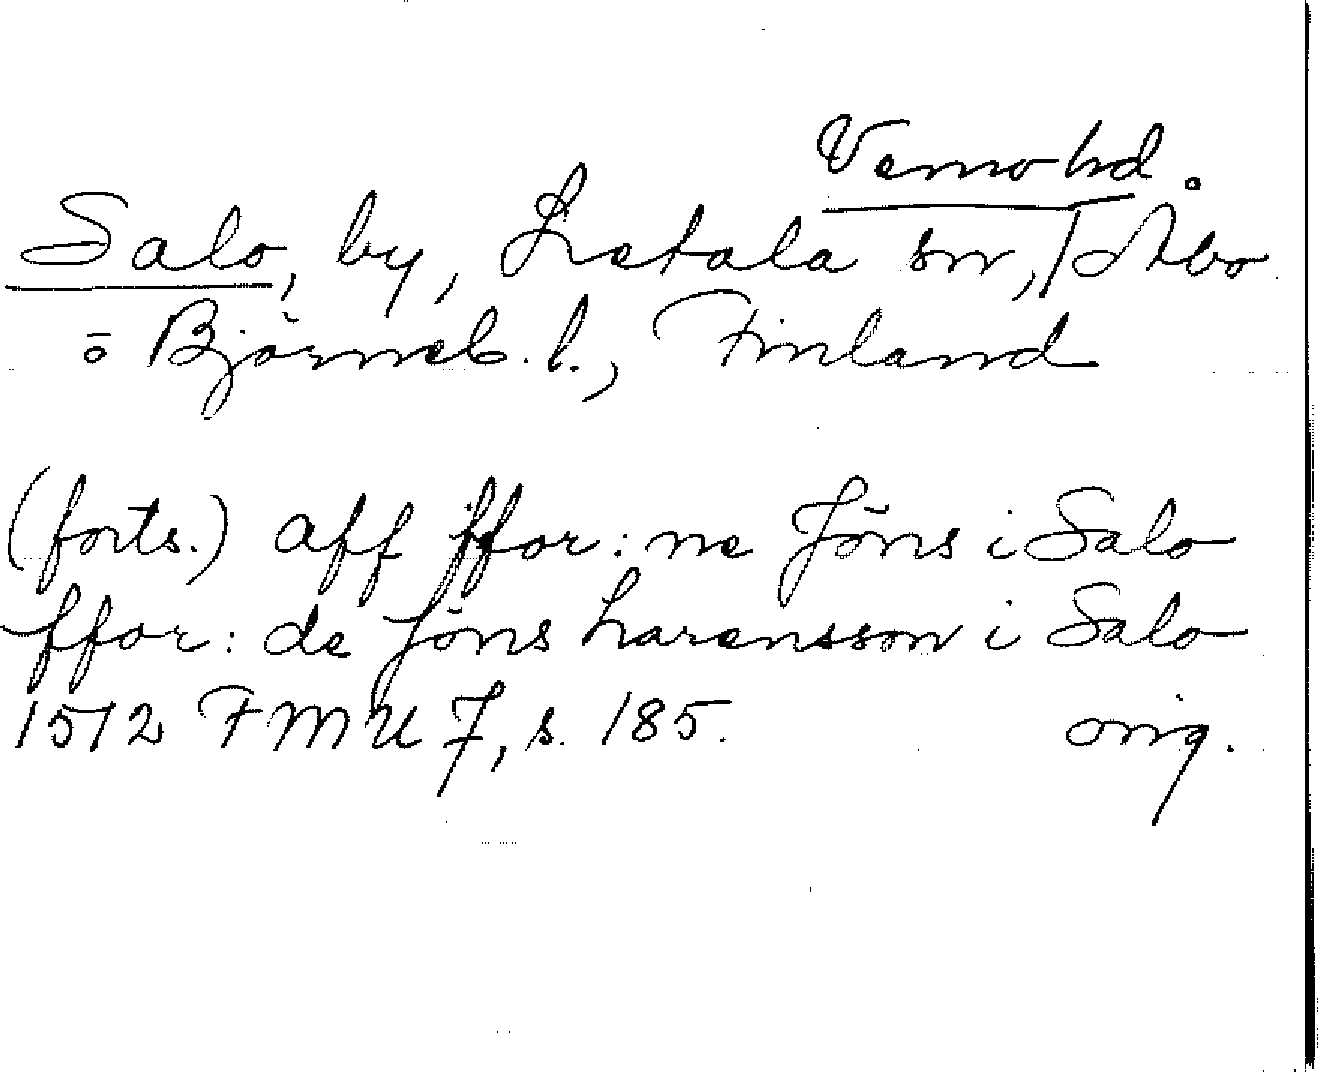 Vemo hd.
Salo, by, Letala sn, Åbo
o Björneb. l., Finland
(forts.) aff ffor: ne Jöns i Salo
ffor: de Jöns Larensson i Salo
1512 FMU 7, s. 185. orig.